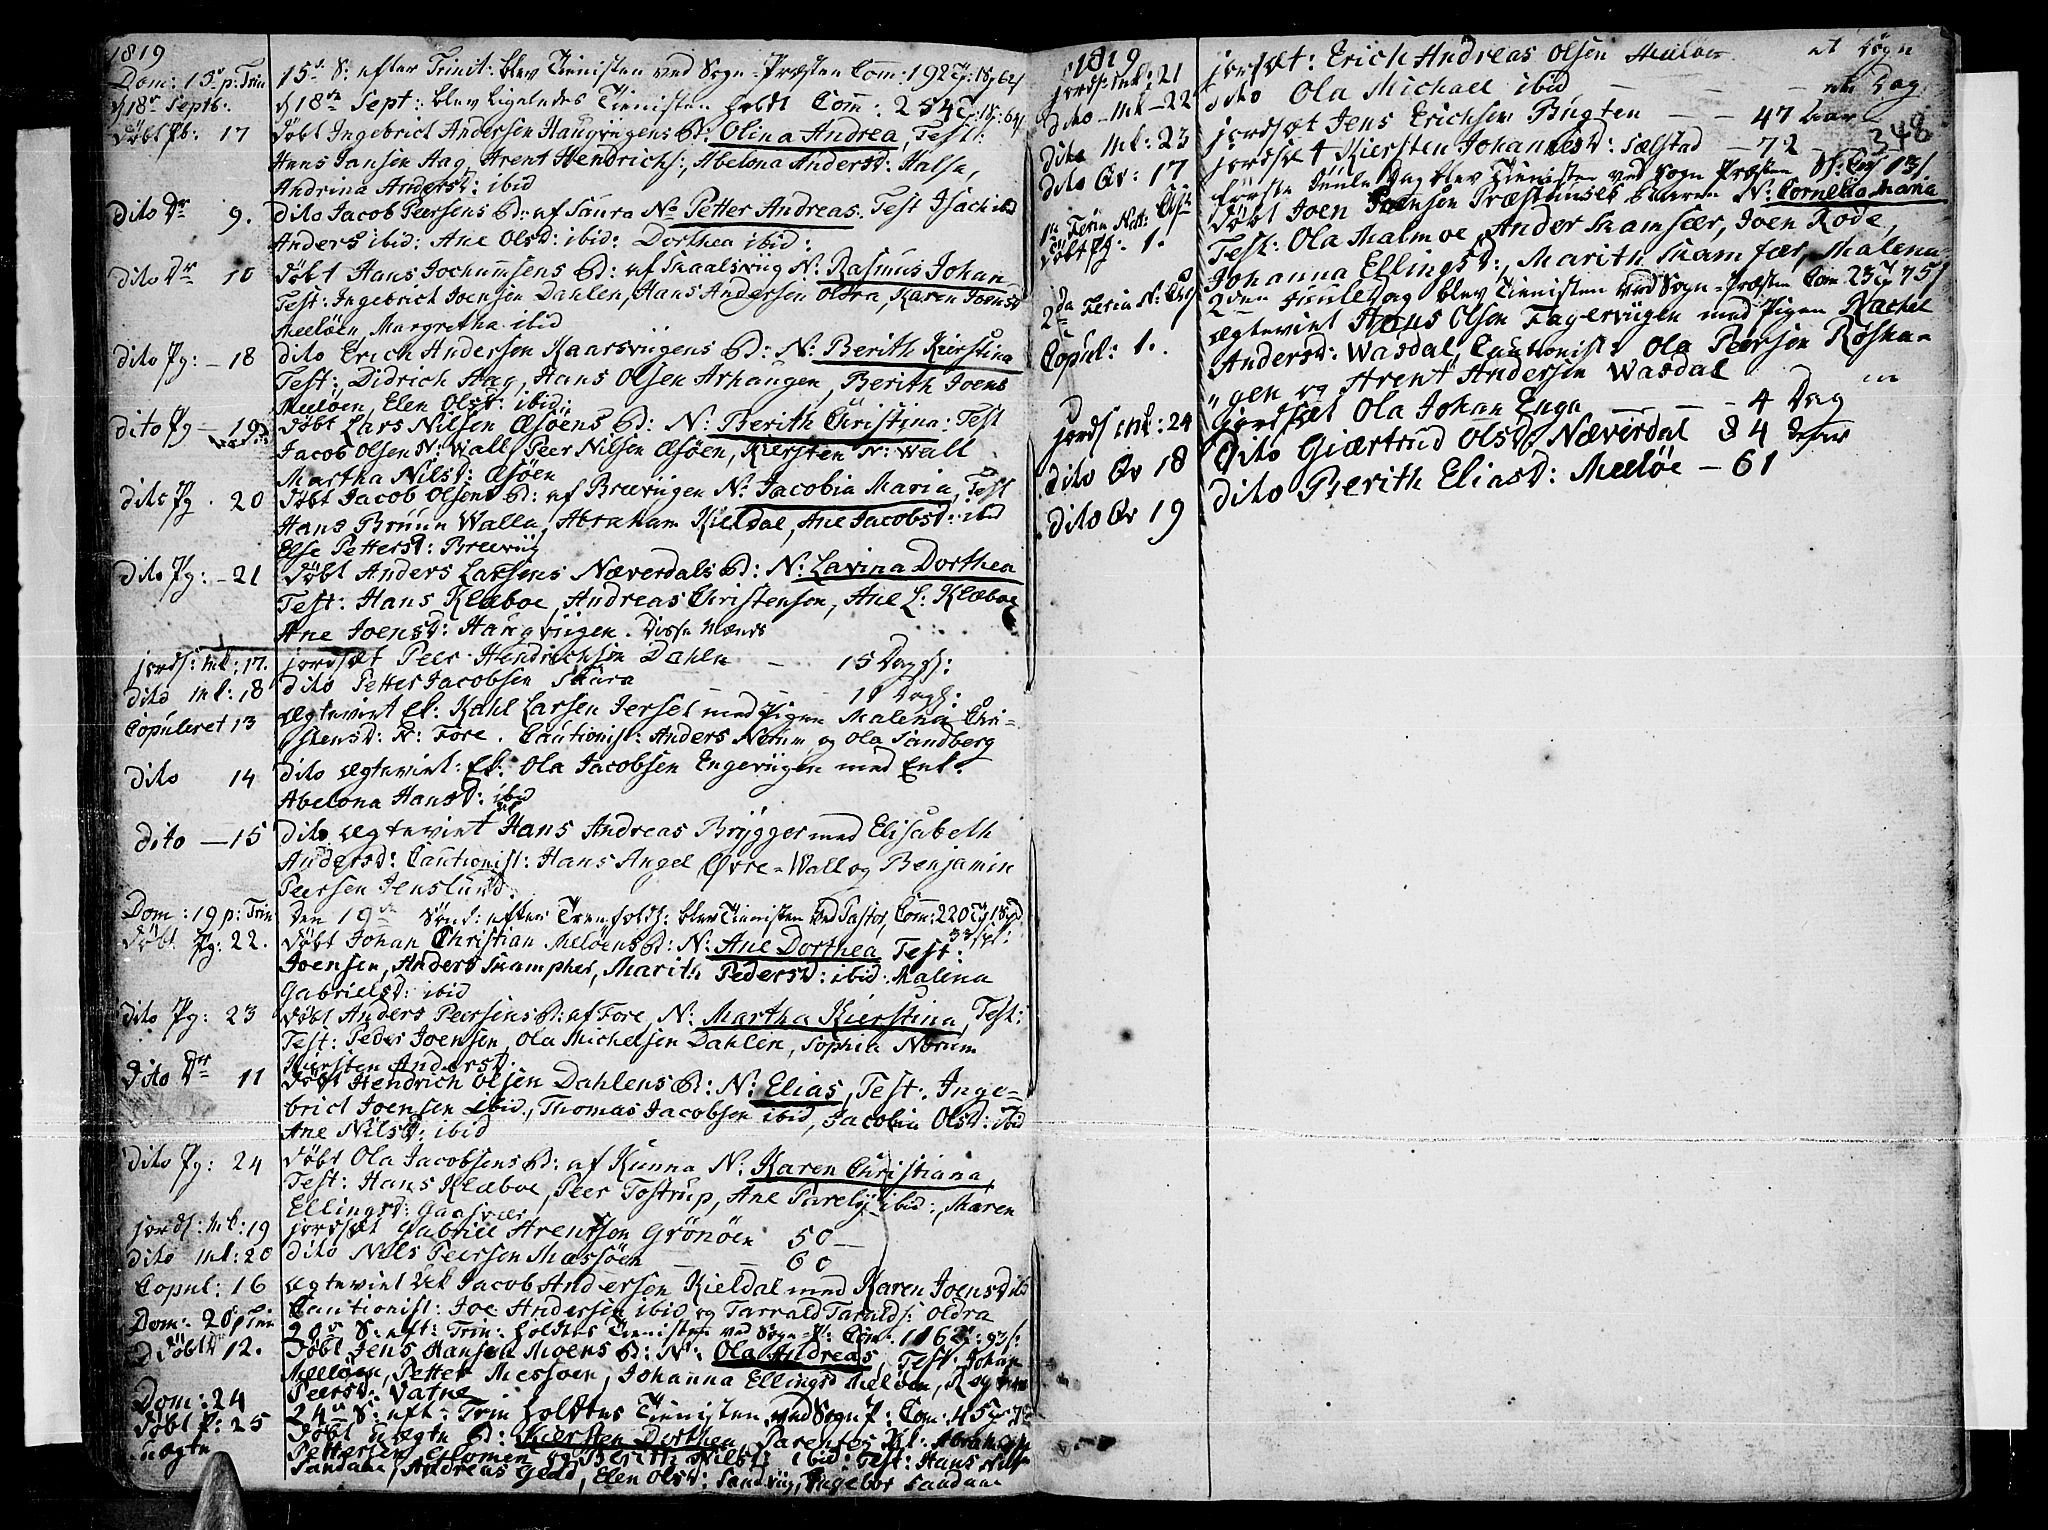 1819
Dom: 15 p: Trin 15de S: efter Trinit: blev Tienisten ved Sogn-Præsten Com: 192
d 18de Septb: d 18de Sept: blev ligeledes Tienisten holdt Com: 254
Døbt Pg: 17 Døbt Ingebrich Andersen Haugviigens B: Olina Andrea, Test:
Hans Jansen Aag, Arent Hendrichs:, Abelona Andersd: Halsa,
Andrina Andersd: ibid
dito Dr 9. dito Jacob Peersens B: af Saura N: Petter Andreas. Test Isach ibid
Anders ibid: Ane Olsd: ibid: Dorthea ibid:
dito Dr 10 Døbt Hans Jochumsens B: af Skaalsviig N: Rasmus Johan
Test: Ingebrich Joensen Dahlen, Hans Andersen Oldra, Karen Joensd
Meeløen, Margretha ibid
dito Pg: 18 dito Erich Andersen Kaarsviigens B: N: Berith Kierstina
Test: Didrich Aag, Hans Olsen Arhaugen, Berith Joens
Meeløen, Elen Olsd: ibid:
dito Pg 19 Døbt Lars Nilsen Æsøens B: N: Berith Christina: Test
Jacob Olsen N: Wall, Peer Nilsen Æsøen, Kiersten N: Wall
Martha Nilsd: Æsøen
dito Pg. 20 Døbt Jacob Olsens B: af Breeviigen N: Jacobia Maria, Test
Hans Bruun Walla, Abraham Kieldal, Ane Jacobsd: ibid
Else Pettersd: Breeviig
dito Pg: 21 Døbt Anders Larsens Næverdals B: N: Lavina Dorthea
Test: Hans Klæboe, Andreas Christensen, Ane L: Klæboe
Ane Joensd: Haugviigen.
jords: Mk: 17. jordsæt Peer Hendrichsen Dahle 15 Dag
dito Mk: 18 dito Petter Jacobsen Saura 11 Dag
Copuleret 13 ægteviet Ek: Kahl Larsen Jerset med Pigen Malena Chri-
stensd: N: Fore. Cautionist: Anders Norum og Ola Sandberg
dito 14 dito ægteviet: Ek: Ola Jacobsen Engeviigen med Enk:
Abelona Hansd: ibid
dito 15 dito ægteviet Hans Andreas Brygger med Elisabeth
Andersd: Cautionist: Hans Angel Øvre-Wall og Benjamin
Peersen Jenslund.
Dom: 19 p: Trin Den 19de Sønd: efter Tren: blev Tienisten ved Pastor, Com: 220
Døbt Pg: 22. Døbt Johan Christian Meløens B: N: Ane Dorthea Test:
Joensen, Anders Skampher, Marith Pedersd: ibid: Malena
Gabrielsd: ibid
dito Pg: 23 Døbt Anders Peersens B: af Fore, N: Martha Kierstina, Test:
Test: Peder Joensen, Ola Michelsen Dahlen, Sophia Norum
Kiersten Andersd:
dito Dr 11 Døbt Hendrich Olsen Dahlens B: N: Elias, Test: Inge-
brict Joensen ibid, Thomas Jacobsen ibid, Jacobia Olsd: ibid
Ane Nilsd: ibid
dito Pg: 24 Døbt Ola Jacobsens B: af Kunna N: Karen Christiana,
Test: Hans Klæboe, Peer Tostrup, Ane Parely ibid:, Maren
Ellingsd: Gaasvær
jords: Mk: 19 jordsæt Gabriel Arentson Grønøen 50
dito Mk: 20 dito Nils Peersen Mæsøen 60
Copul: 16 ægteviet Jacob Andersen Kieldal med Karen Joensd ibid
Cautionist: Joe Andersen ibid og Tarrald Taralds: Oldra
Dom: 20 p Trin 20de S: eft: Trin: holdtes Tienisten ved Sogn-P: Com: 116
Døbt Dr 12. Døbt Jens Hansen Moens B: N: Ola Andreas, Test: Johan
Meeløen, Petter Messøen, Johanna Ellingsd Meløen,
Peersd: Vatne
Dom: 24 24de S: eft: Trin holdtes Tienisten ved Sogn P: Com: 45
Døbt P: 25 Døbt uægte B: Kiersten Dorthea, Parentes
uægte Pettersen Glomen og Berith Nilsd: ibid: Test: Hans
Sandaae, Andreas Gield, Elen Olsd: Sandviig, Ingebor Sandaae
1819
348
jords: Mk: 21 jordsæt: Erich Andreas Olsen Meeløe et Døgn
dito Mk 22 dito Ola Michael ibid Dag
dito Mk: 23 jordsæt Jens Erichsen Bugten 47 aar
dito Qv: 17 jordsæt Kiersten Johannesd: Sælstad 72
første Juule Dag blev Tienisten ved Sogn Præsten
Døbt Pg: 1. Døbt Joen Joensen Præstnuses Baren N: Cornelia Maria
Test: Ola Malmoe, Ander Skamfær, Joen Rode,
Johanna Ellingsd:, Marith Skamfær, Malena
2da Feria N: Chr 2den Juuledag blev Tienisten ved Sogn-Præsten Com 23
Copul: 1. ægteviet Hans Olsen Fagerviigen med Pigen Rachel
Andersd: Wasdal, Cautionist: Ola Peersen Røshau-
gen og Arent Andersen Wasdal
jords Mk: 24 jordsæt Ola Johan Enga 4 Dag
dito Qv 18 Dito Giærtrud Olsd: Næverdal 84
dito Qv 19 dito Berith Eliasd: Meeløe - 61